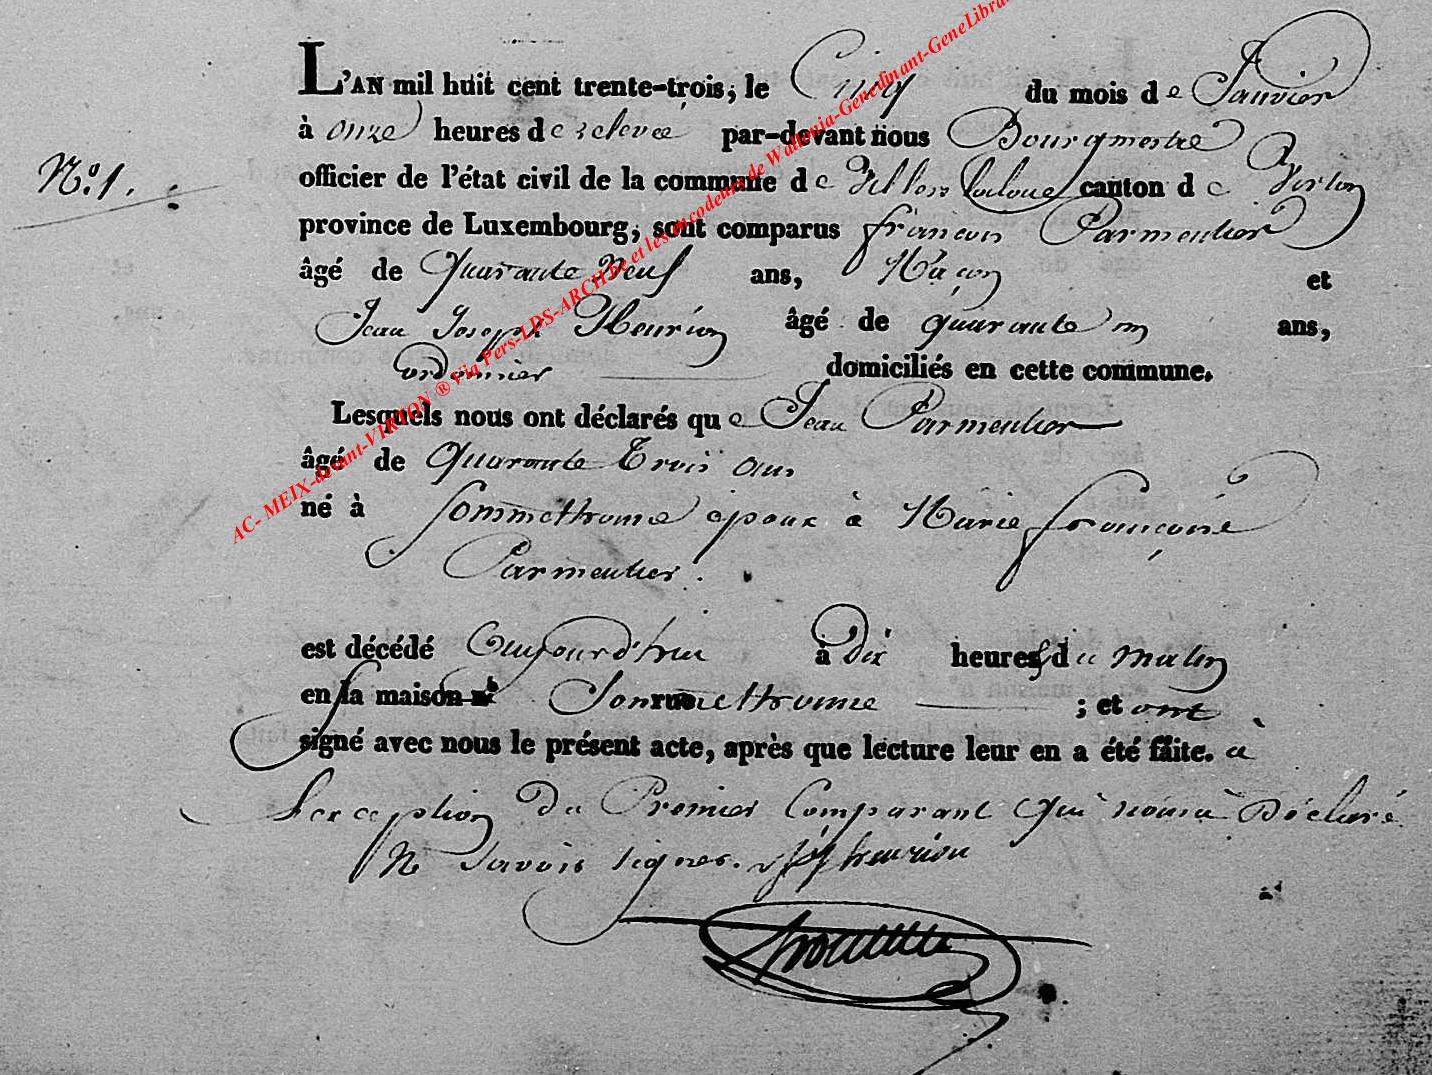 L'AN mil huit cent trente-trois, le Cinq du mois de Janvier
à onze heures de relevée par-devant nous Bourgmestre
N.° 1.
officier de l'état civil de la commune de Villers laloue canton de Virton
province de Luxembourg, sont comparus françois Parmentier
âgé de Quarante Neuf ans, Maçon et
Jean Joseph Henrion âgé de quarante un ans,
Cordonnier domiciliés en cette commune.
Lesquels nous ont déclarés que Jean Parmentier
âgé de Quarante Trois ans
né à Sommethonne époux à Marie françoise
Parmentier.
est décédé Aujourd'hui à Dix heures du matin
en la maison n° rue Sommethonne ; et ont
signé avec nous le présent acte, après que lecture leur en a été faite. à
L'exception du Premier Comparant qui nous à Déclaré
Ne Savoir signer. JJ henrion
AC- MEIX-devant-VIRTON ® Via Pers-LDS-ARCH.be et les encodeurs de Wallonia-Genedinant-GeneLibra